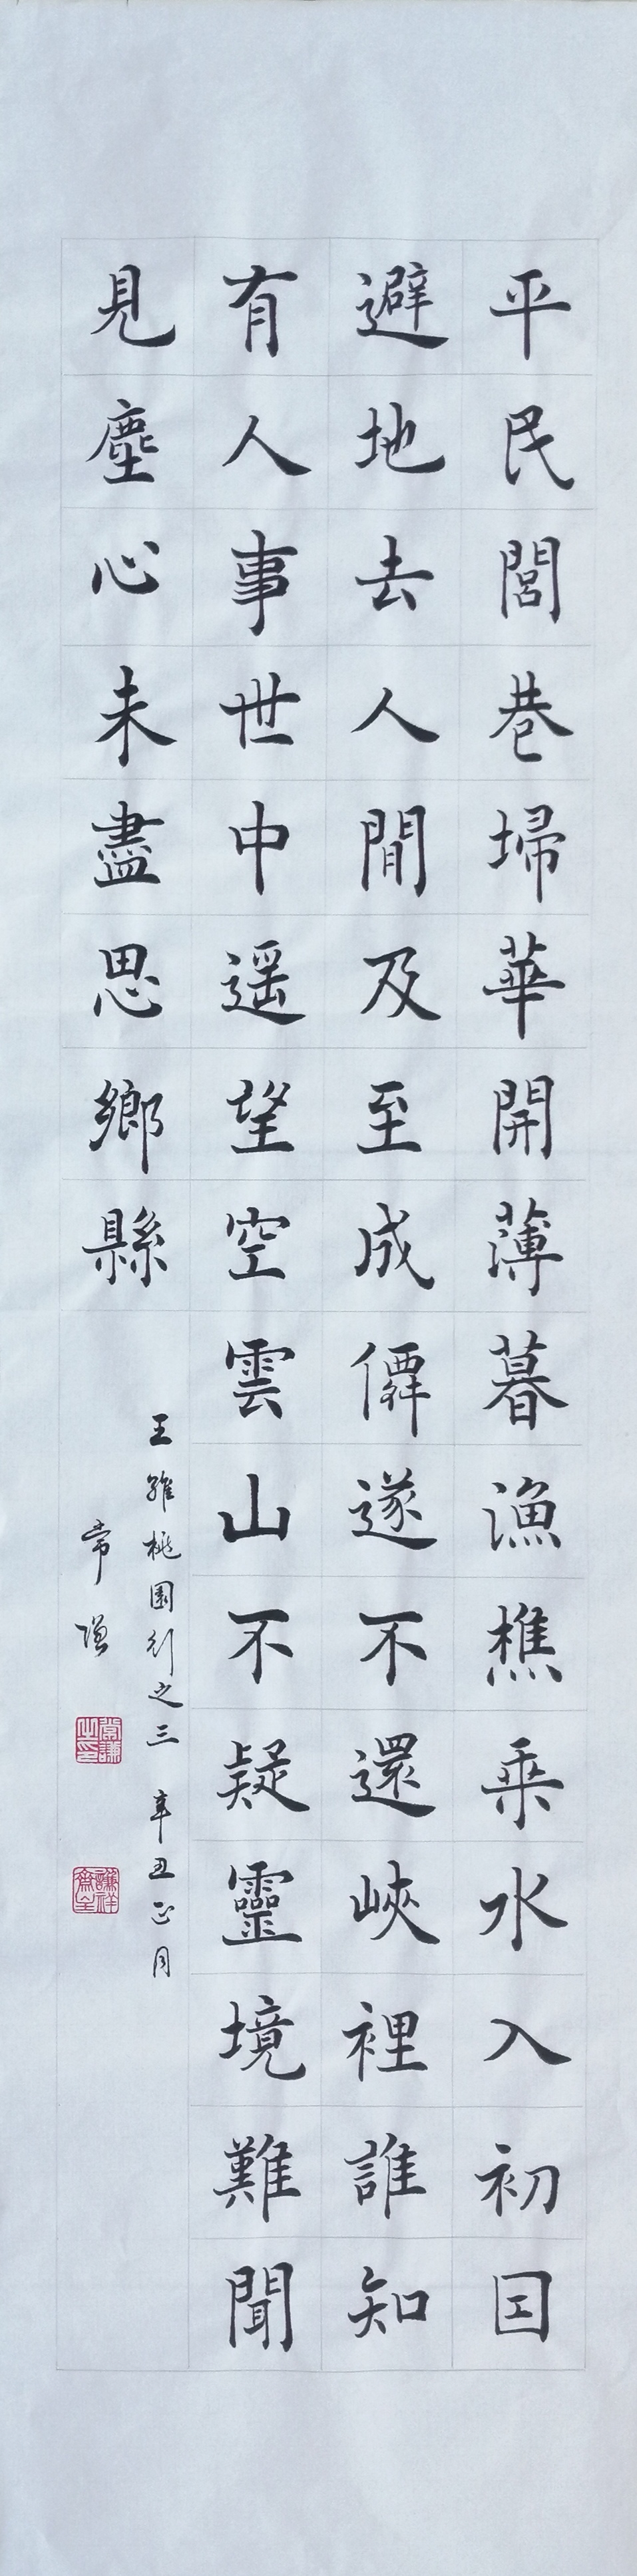 平民閭巷埽華開薄暮漁樵乘水入初因
避地去人閒及至成僊遂不還峽裡誰知
有人事世中遥望空雲山不疑靈境難聞
見塵心未盡思鄉縣
王維桃園行之三 辛丑正月
常謙
常謙之印